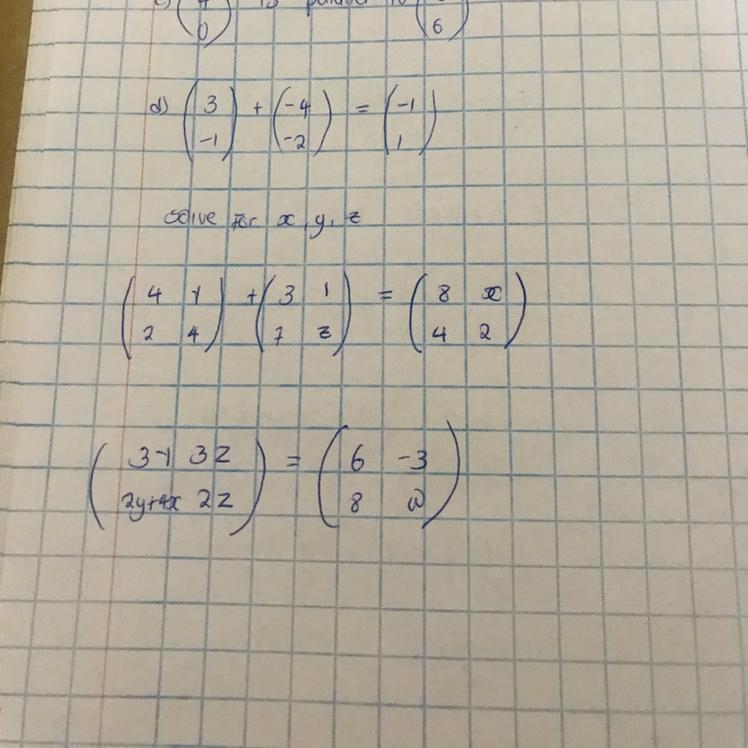 c) ( ) is parallel to ( )
0 6
d) (3 -1) + (-4 -2) = (-1 1)
solve for x, y, z
(4 y 2 4) + (3 1 7 z) = (8 x 4 2)
(3-y 3z 2y+4x 2z) = (6 -3 8 w)